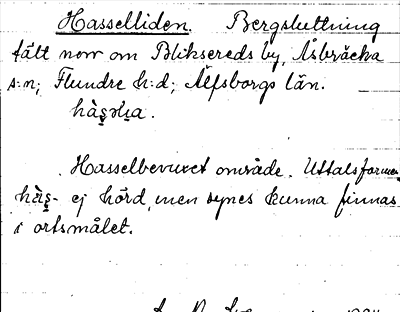 Hasselliden. Bergsluttning
tätt norr om Bliksereds by, Åsbräcka
s:n; Flundre h:d; Älfsborgs län.
Hasselbevuxet område. Uttalsformen
hàs̬- ej hörd, men synes kunna finnas
i ortsmålet.